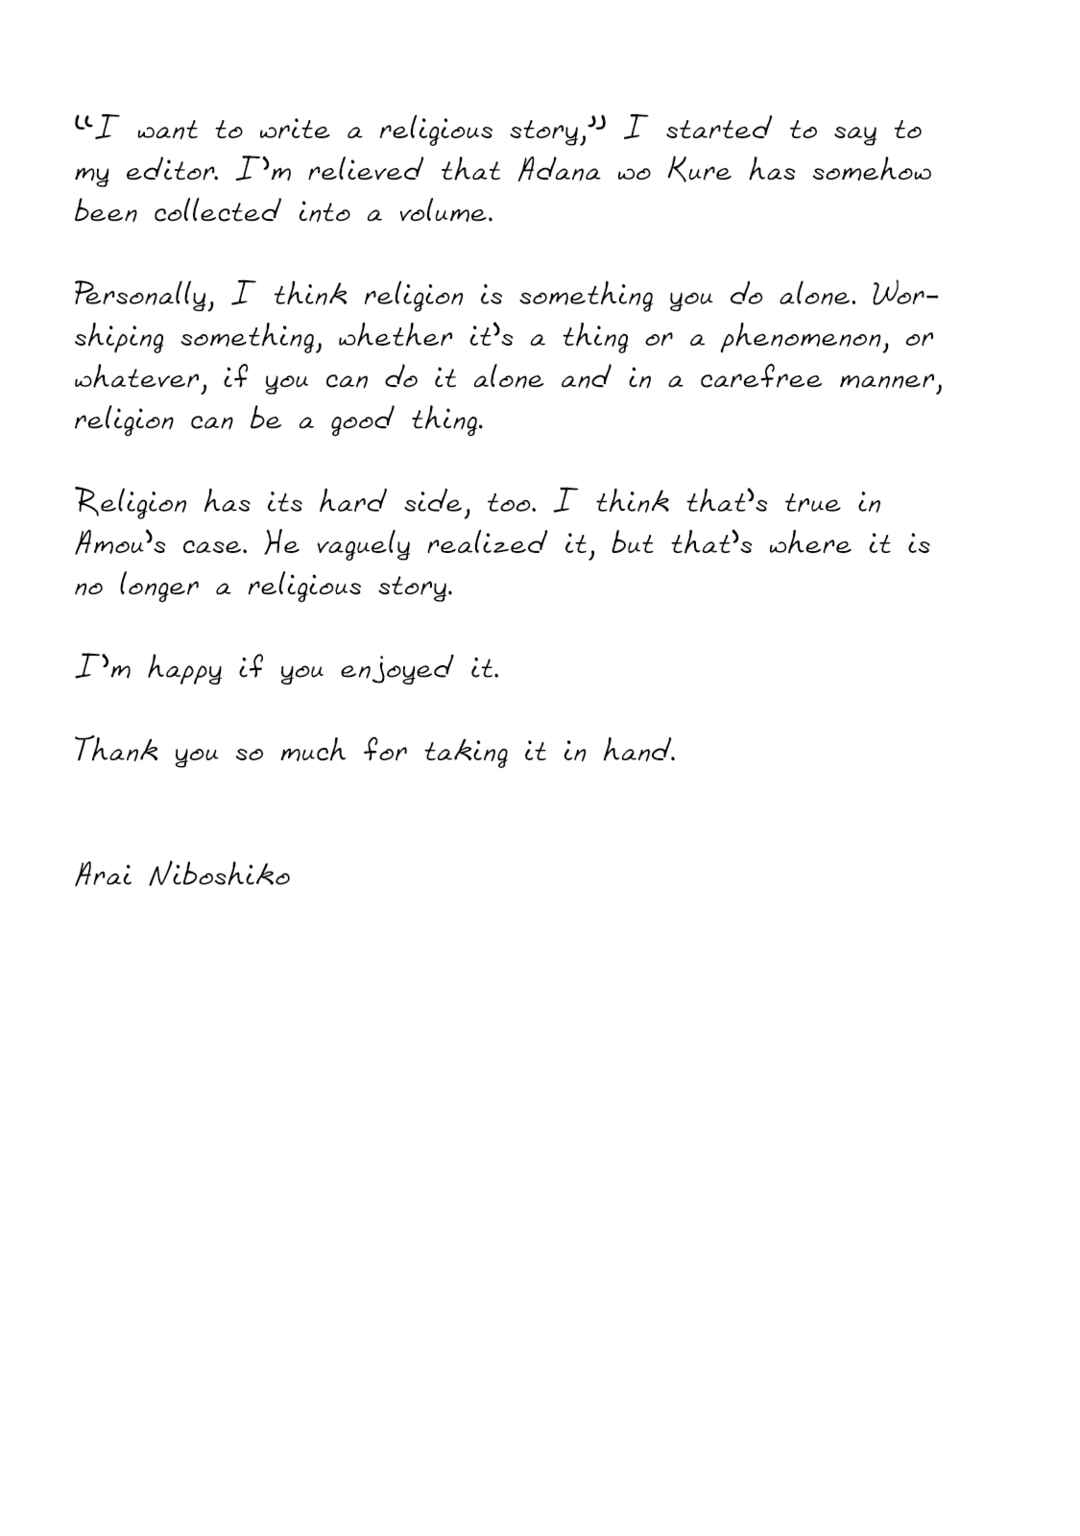 “I want to write a religious story,” I started to say to
my editor. I’m relieved that Adana wo Kure has somehow
been collected into a volume.
Personally, I think religion is something you do alone. Wor-
shiping something, whether it’s a thing or a phenomenon, or
whatever, if you can do it alone and in a carefree manner,
religion can be a good thing.
Religion has its hard side, too. I think that’s true in
Amou’s case. He vaguely realized it, but that’s where it is
no longer a religious story.
I’m happy if you enjoyed it.
Thank you so much for taking it in hand.
Arai Niboshiko